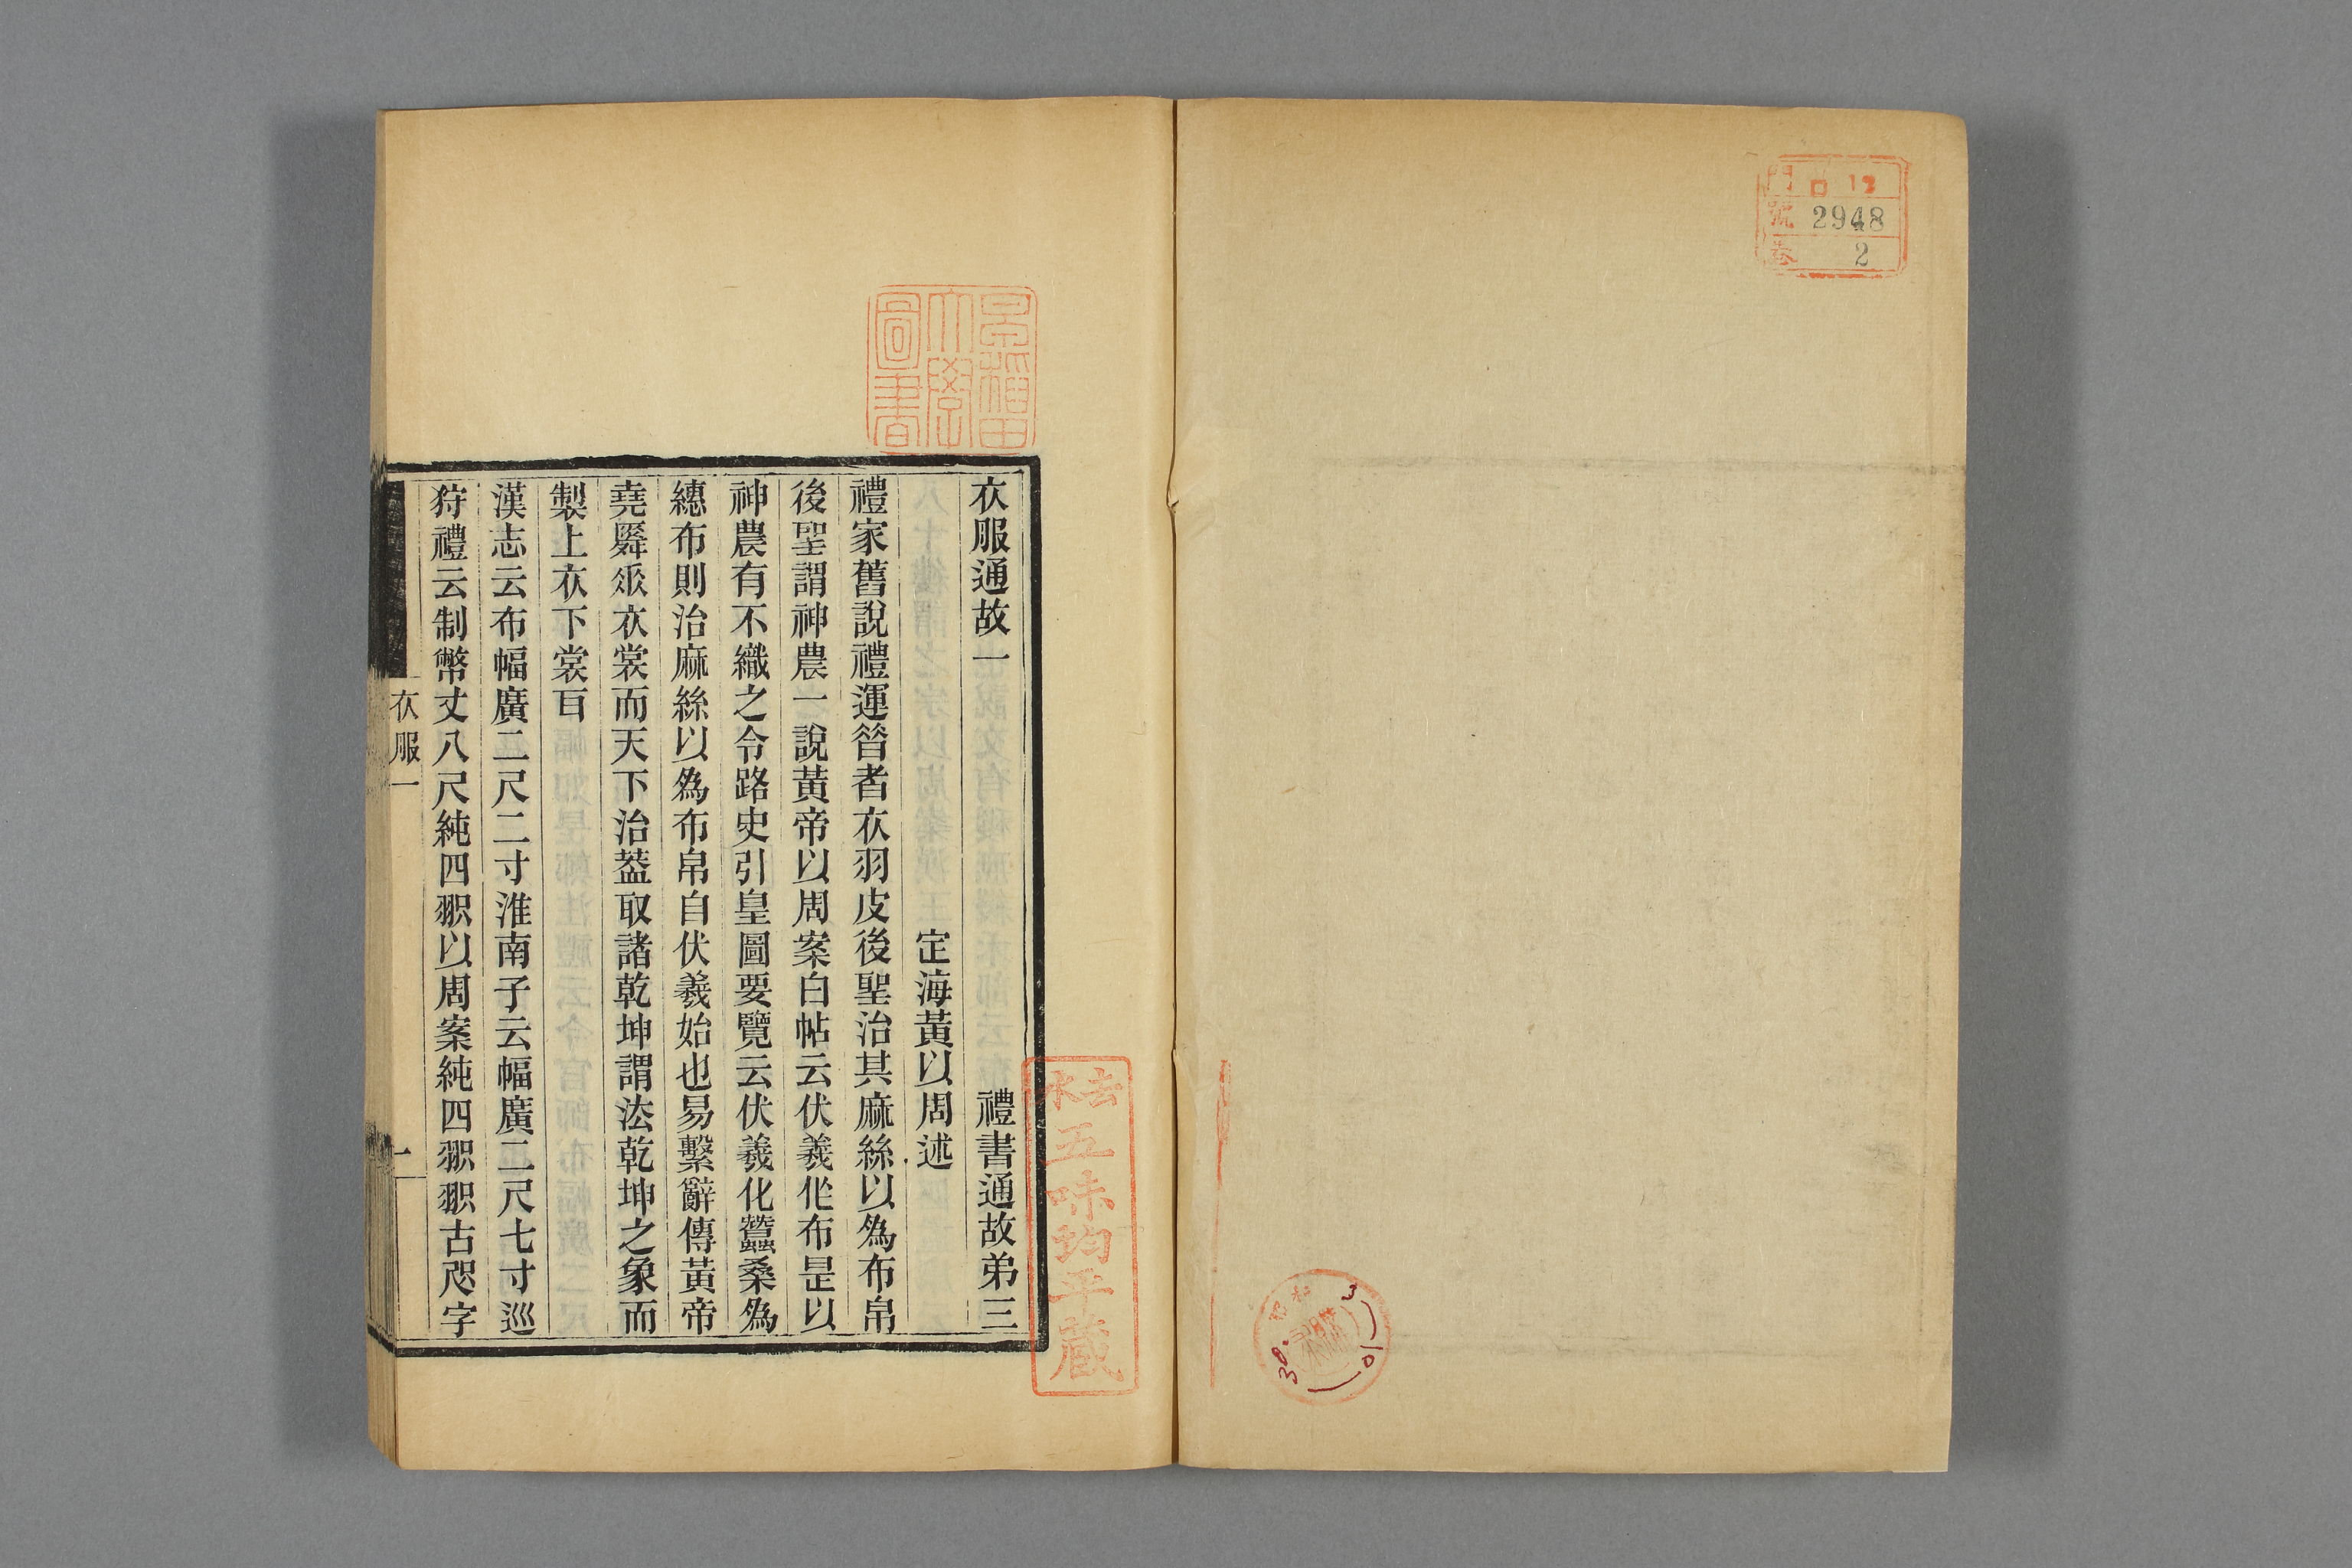 門 ロ 12
號 2948
卷 2
早稲田
大學
圖書
衣服通故一 禮書通故弟三
定海黃以周述
禮家舊說禮運昔者衣羽皮後聖治其麻絲以為布帛
後聖謂神農一說黃帝以周案白帖云伏羲作布是以
神農有不織之令路史引皇圖要覽云伏羲化蠶桑為
繐布則治麻絲以為布帛自伏羲始也易繫辭傳黃帝
堯舜𠂹衣裳而天下治蓋取諸乾坤謂法乾坤之象而
製上衣下裳百
漢志云布幅廣二尺二寸淮南子云幅廣二尺七寸巡
狩禮云制幣丈八尺純四𦐖以周案純四𦐖𦐖古咫字
衣服一
一
五味均平蔵